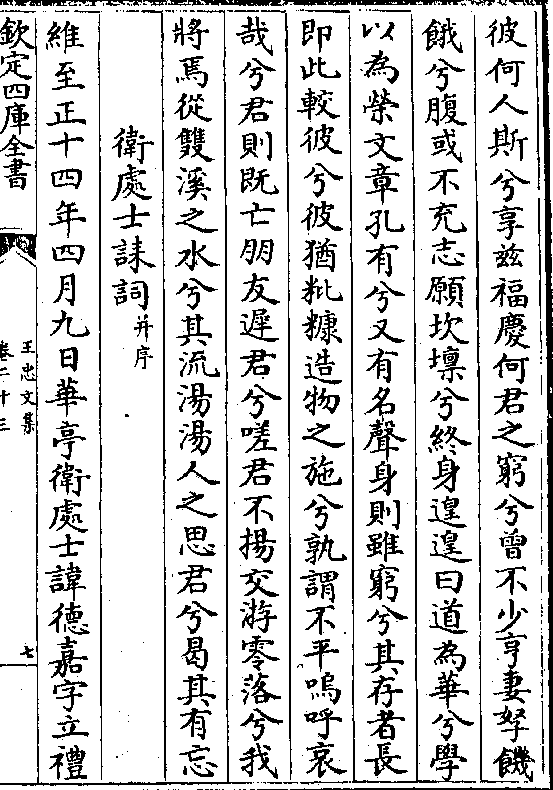 彼何人斯兮享兹福慶何君之窮兮曾不少亨妻孥饑
餓兮腹或不充志願坎壈兮終身遑遑曰道為華兮學
以為榮文章孔有兮又有名聲身則雖窮兮其存者長
即此較彼兮彼猶粃糠造物之施兮孰謂不平嗚呼哀
哉兮君則既亡朋友遲君兮嗟君不揚交游零落兮我
將焉從雙溪之水兮其流湯湯人之思君兮曷其有忘
衛處士誄詞并序
維至正十四年四月九日華亭衛處士諱德嘉字立禮
欽定四庫全書
王忠文集
卷二十三
七